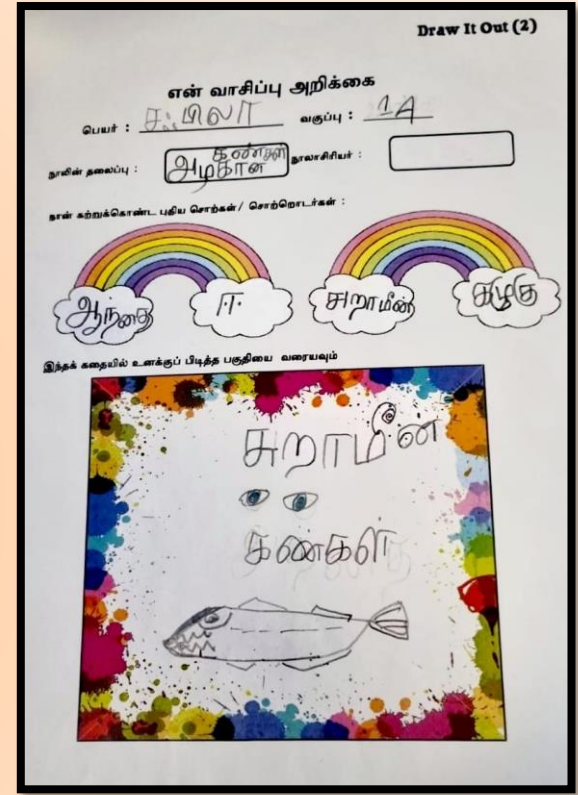 Draw It Out (2)
என் வாசிப்பு அறிக்கை
பெயர் : ஃபிலா வகுப்பு : 1A
நூலின் தலைப்பு : அழகான கண்கள் நூலாசிரியர் :
நான் கற்றுக்கொண்ட புதிய சொற்கள்/ சொற்றொடர்கள் :
ஆந்தை ஈ சுறாமீன் கழுகு
இந்தக் கதையில் உனக்குப் பிடித்த பகுதியை வரையவும்
சுறாமீன்
கண்கள்